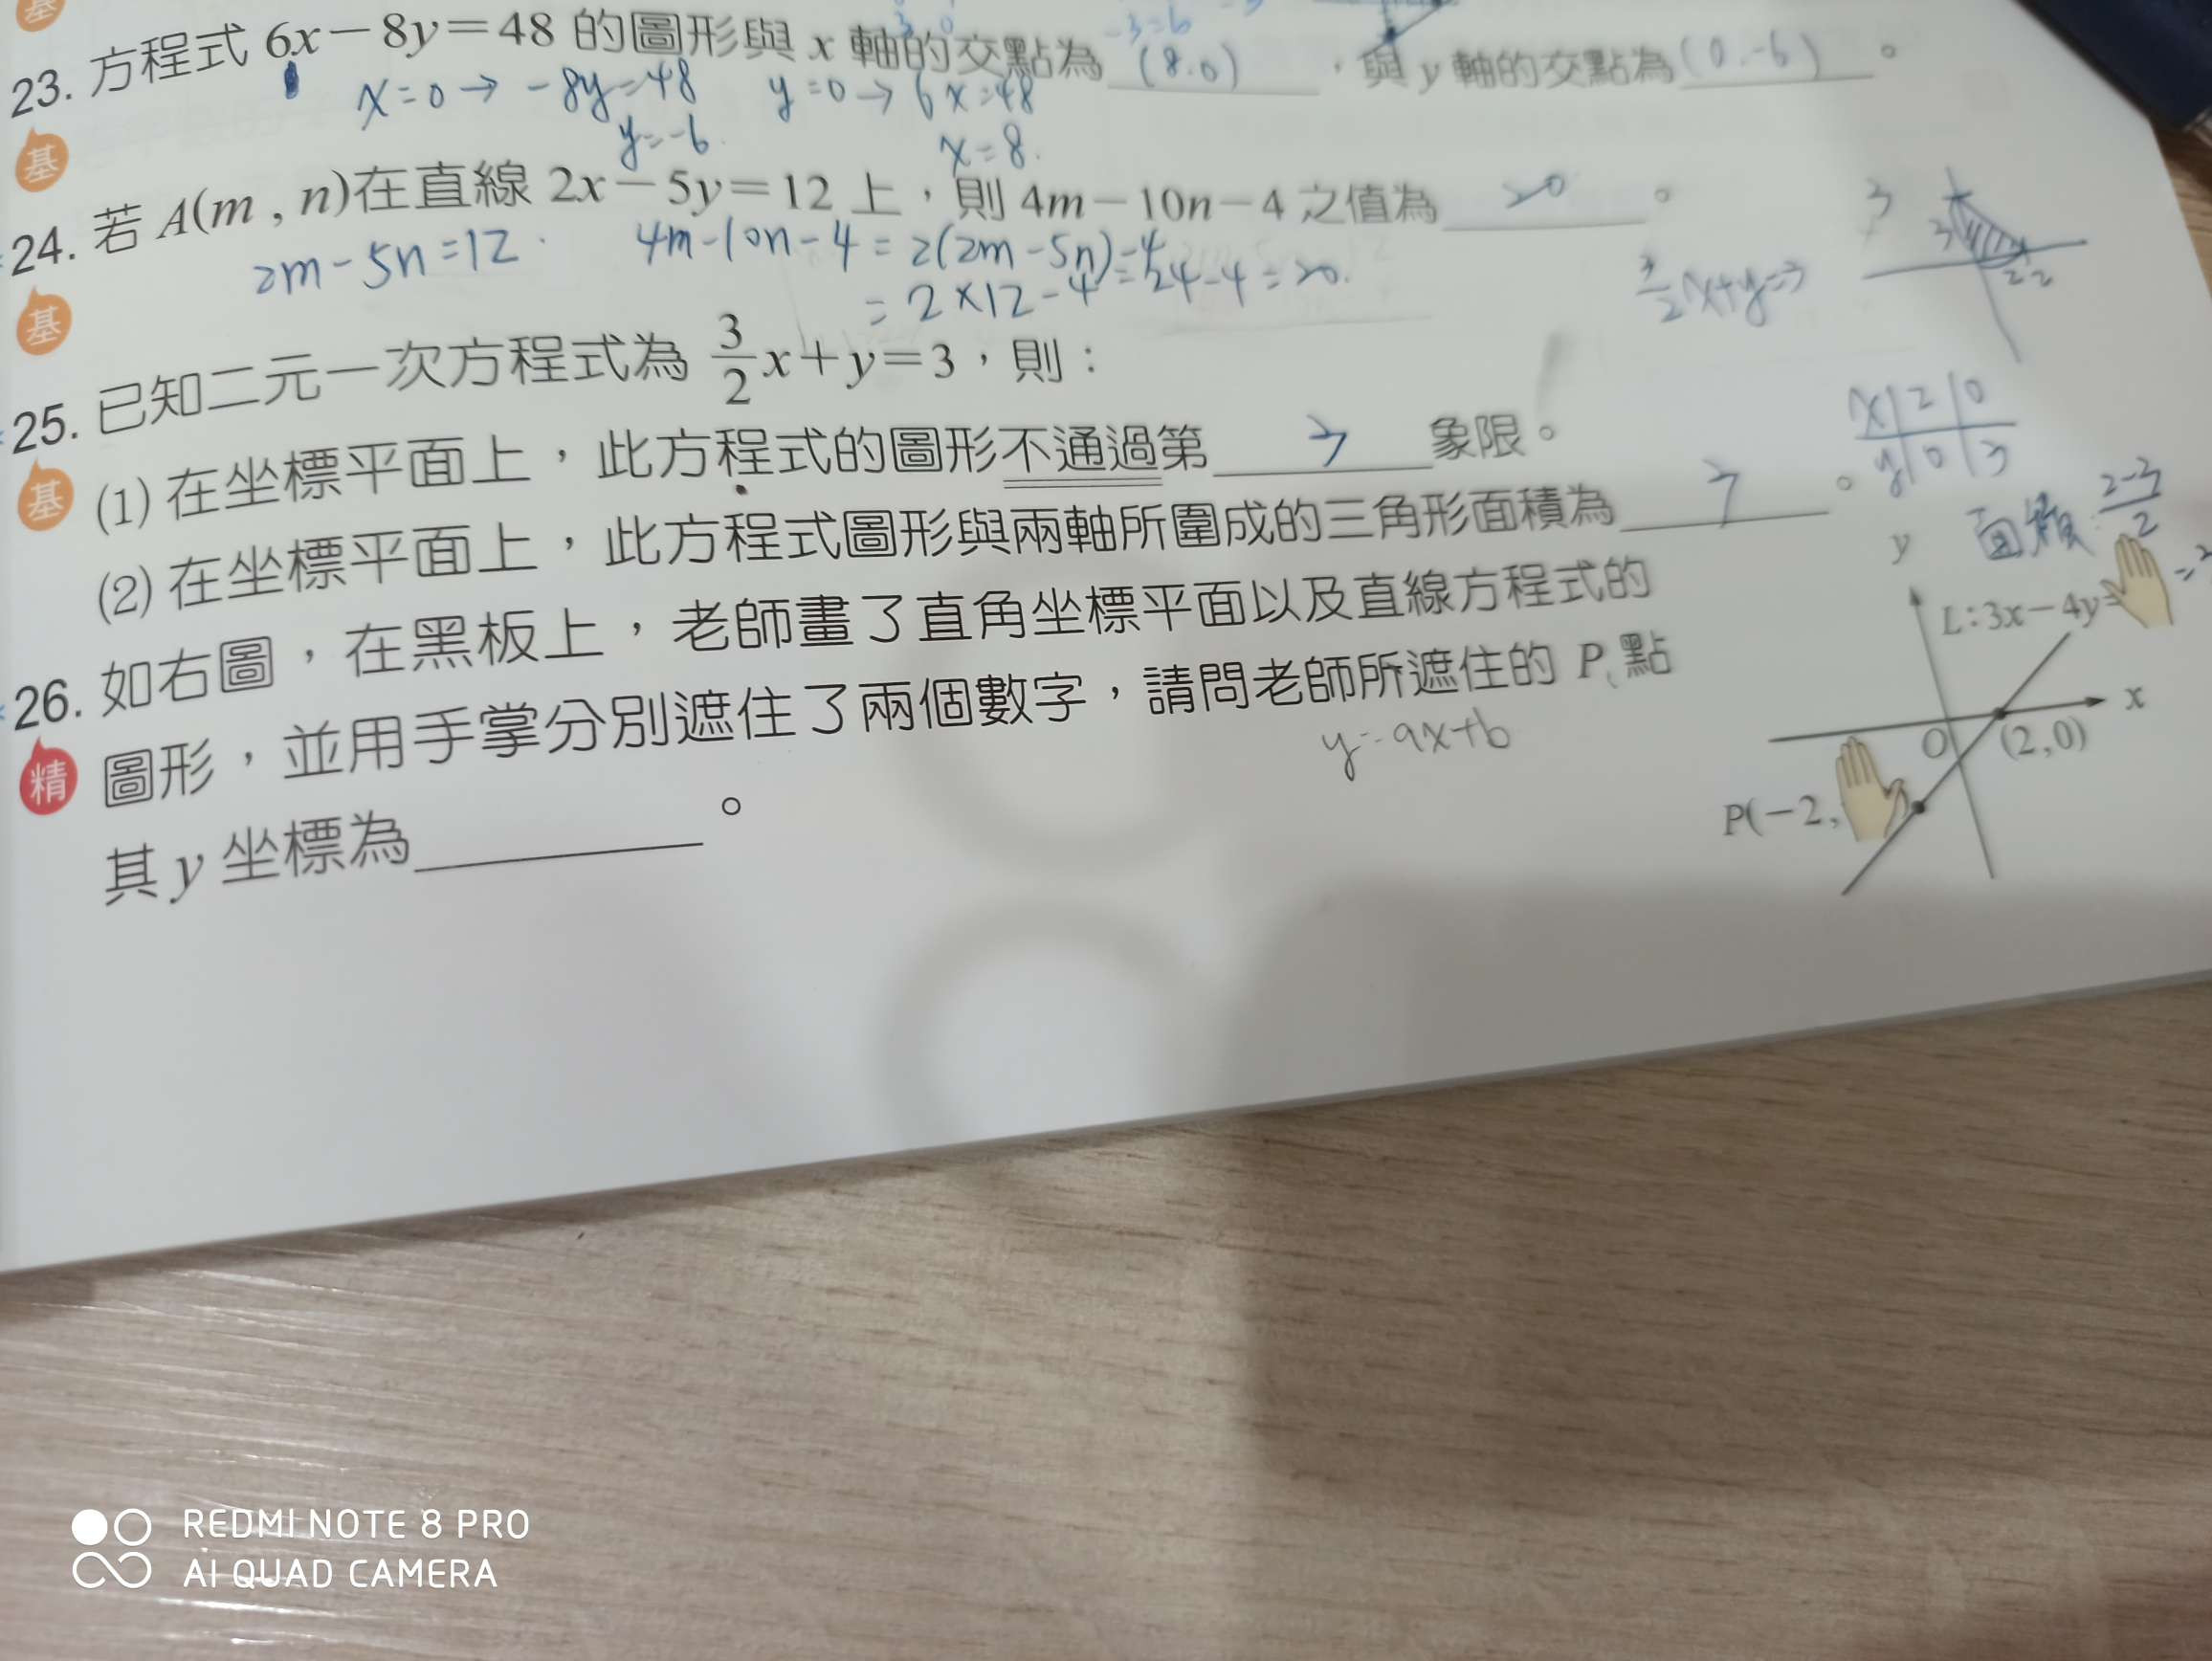 基
-3=6
23. 方程式 6x－8y＝48 的圖形與 x 軸的交點為 (8.0) ，與 y 軸的交點為 (0.-6) 。
x=0→ -8y=48 y=0→ 6x=48
y=-6 x=8.
基
24. 若 A(m , n)在直線 2x－5y＝12 上，則 4m－10n－4 之值為 20 。
2m-5n=12. 4m-10n-4 = 2(2m-5n)-4
= 2×12-4 = 24-4=20.
基
25. 已知二元一次方程式為 3/2 x＋y＝3，則：
3/2 x+y=3
3
3
2
基
(1) 在坐標平面上，此方程式的圖形不通過第 3 象限。
(2) 在坐標平面上，此方程式圖形與兩軸所圍成的三角形面積為 3 。
x|2|0
y|0|3
面積
26. 如右圖，在黑板上，老師畫了直角坐標平面以及直線方程式的
精
圖形，並用手掌分別遮住了兩個數字，請問老師所遮住的 P 點
其 y 坐標為 。
y=ax+b
y
L:3x－4y=
x
O
(2,0)
P(－2,
REDMI NOTE 8 PRO
AI QUAD CAMERA